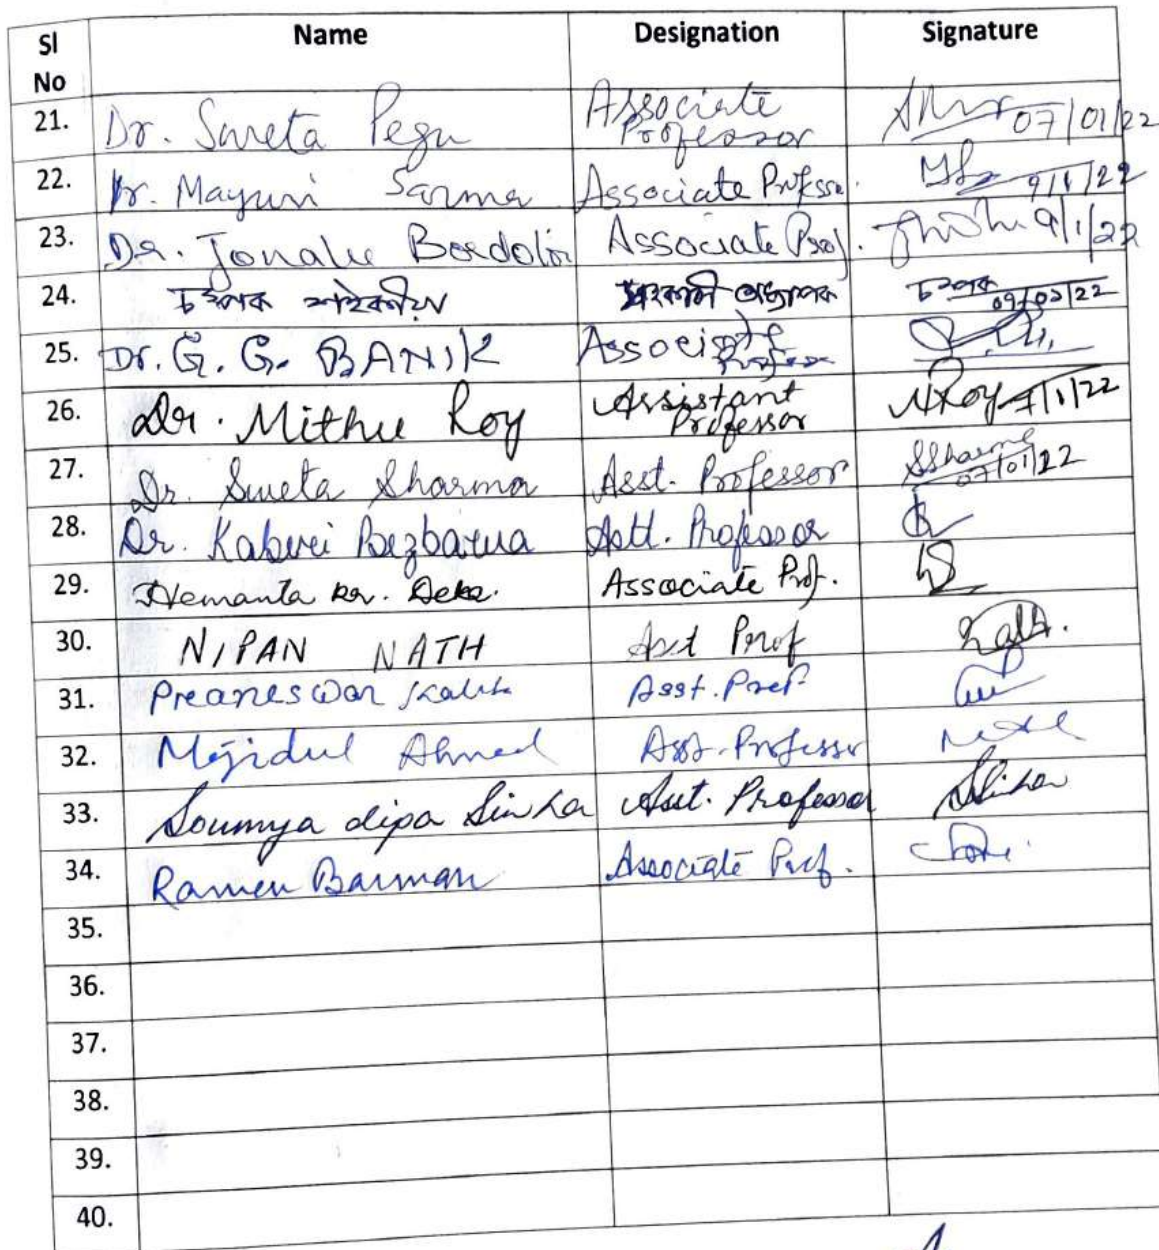 Sl No Name Designation Signature
21. Dr. Sweta Pegu Associate Professor 07/01/22
22. Dr. Mayuri Sarma Associate Professor 9/1/22
23. Dr. Jonalee Bordoloi Associate Prof. 9/1/22
24. চম্পক শইকীয়া সহকাৰী অধ্যাপক চম্পক 09/01/22
25. Dr. G. G. BANIK Associate Professor
26. Dr. Mithu Roy Assistant Professor MRoy 7/1/22
27. Dr. Sweta Sharma Asst. Professor SSharma 07/01/22
28. Dr. Kaberi Bezbarua Asstt. Professor
29. Hemanta kr. Deka. Associate Prof.
30. NIPAN NATH Asst Prof
31. Praneswar Kalita Asst. Prof
32. Mojidul Ahmed Asst. Professor
33. Soumya dipa Sinha Asst. Professor
34. Ramen Barman Associate Prof.
35.
36.
37.
38.
39.
40.